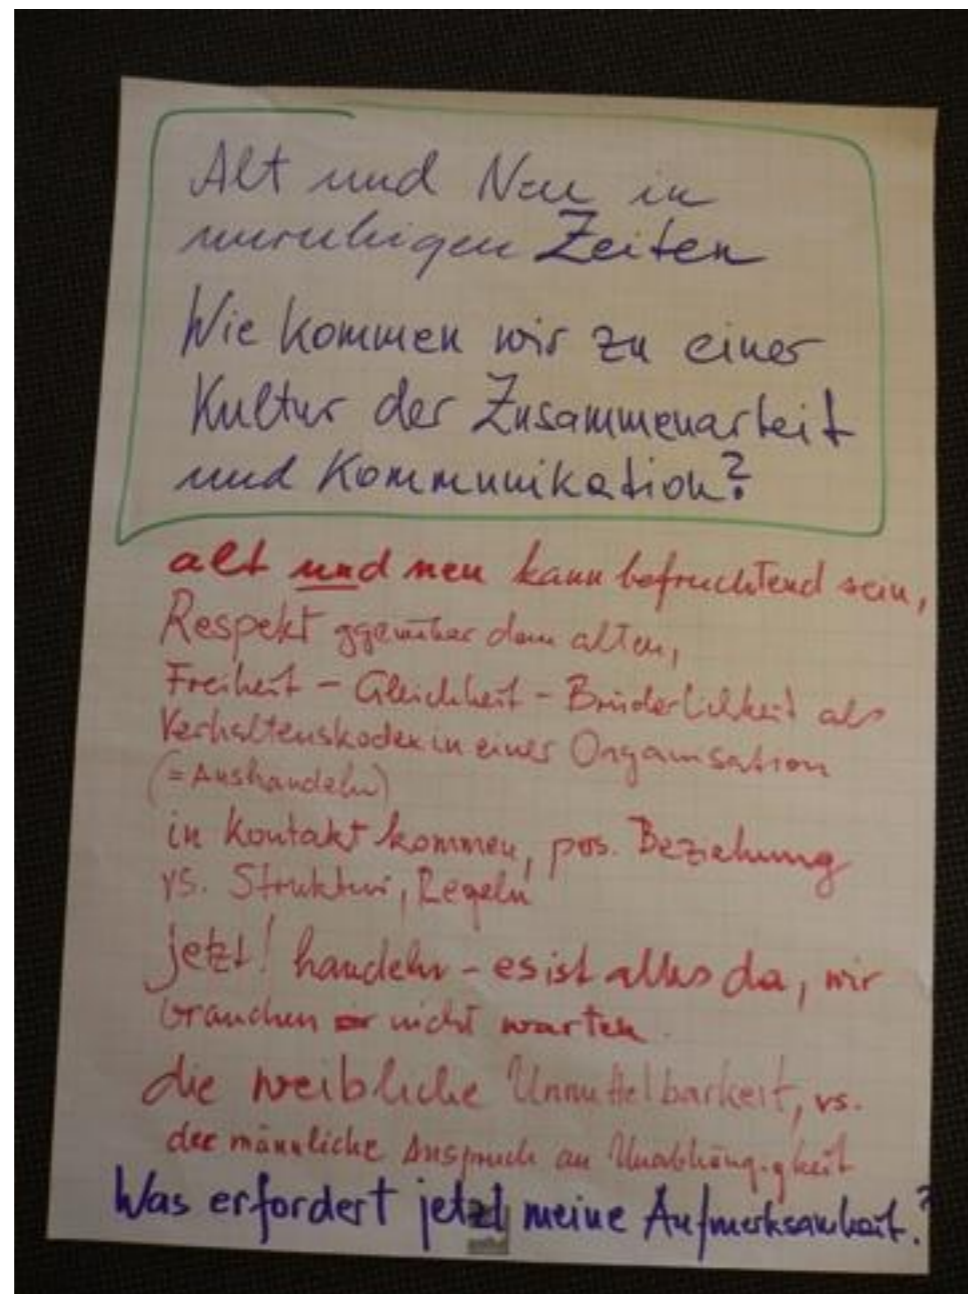 Alt und Neu in
unruhigen Zeiten
Wie kommen wir zu einer
Kultur der Zusammenarbeit
und Kommunikation?
alt und neu kann befruchtend sein,
Respekt ggenüber dem alten,
Freiheit - Gleichheit - Brüderlichkeit als
Verhaltenskodex in einer Organisation
(= Aushandeln)
in Kontakt kommen, pos. Beziehung
vs. Struktur, Regeln
jetzt! handeln - es ist alles da, wir
brauchen nicht warten.
die weibliche Unmittelbarkeit, vs.
der männliche Anspruch an Unabhängigkeit
Was erfordert jetzt meine Aufmerksamkeit?